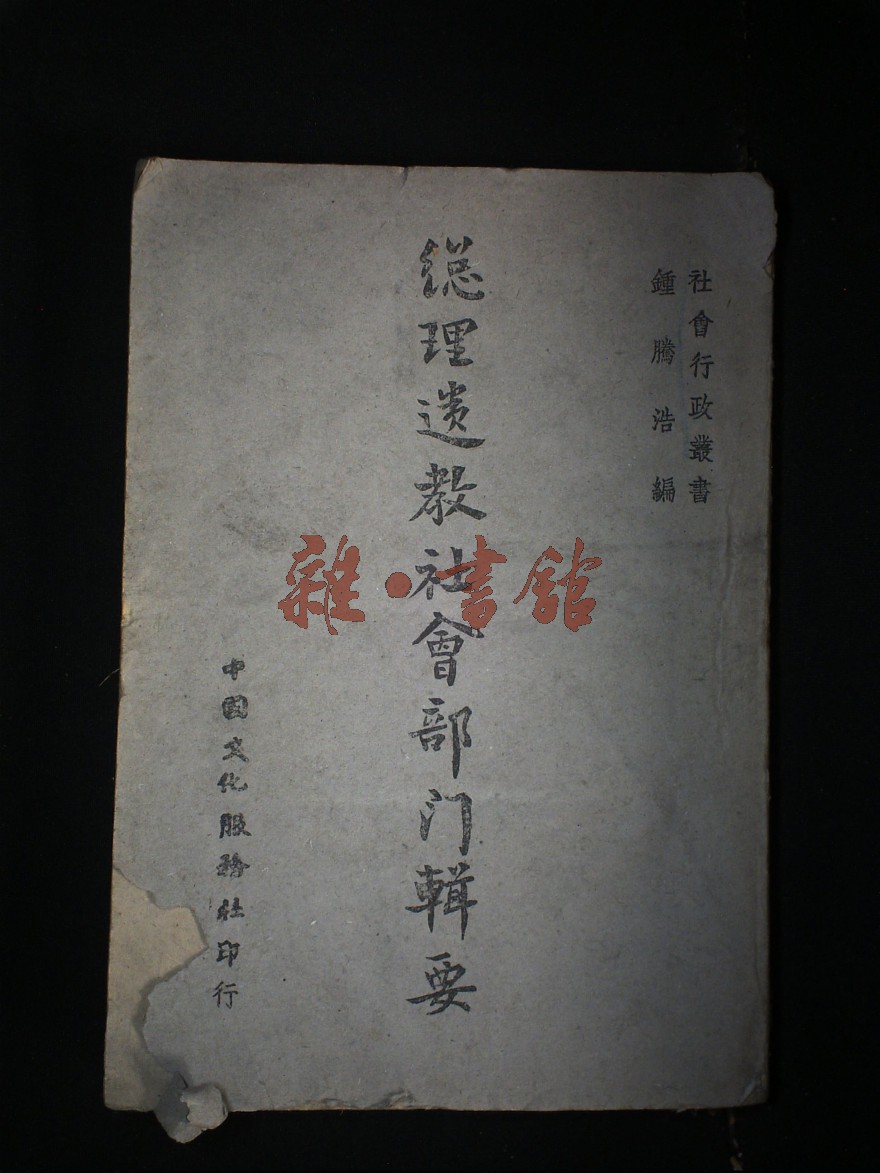 社會行政叢書
鍾騰浩編
総理遗教社會部门輯要
中國文化服務社印行
雜·書館